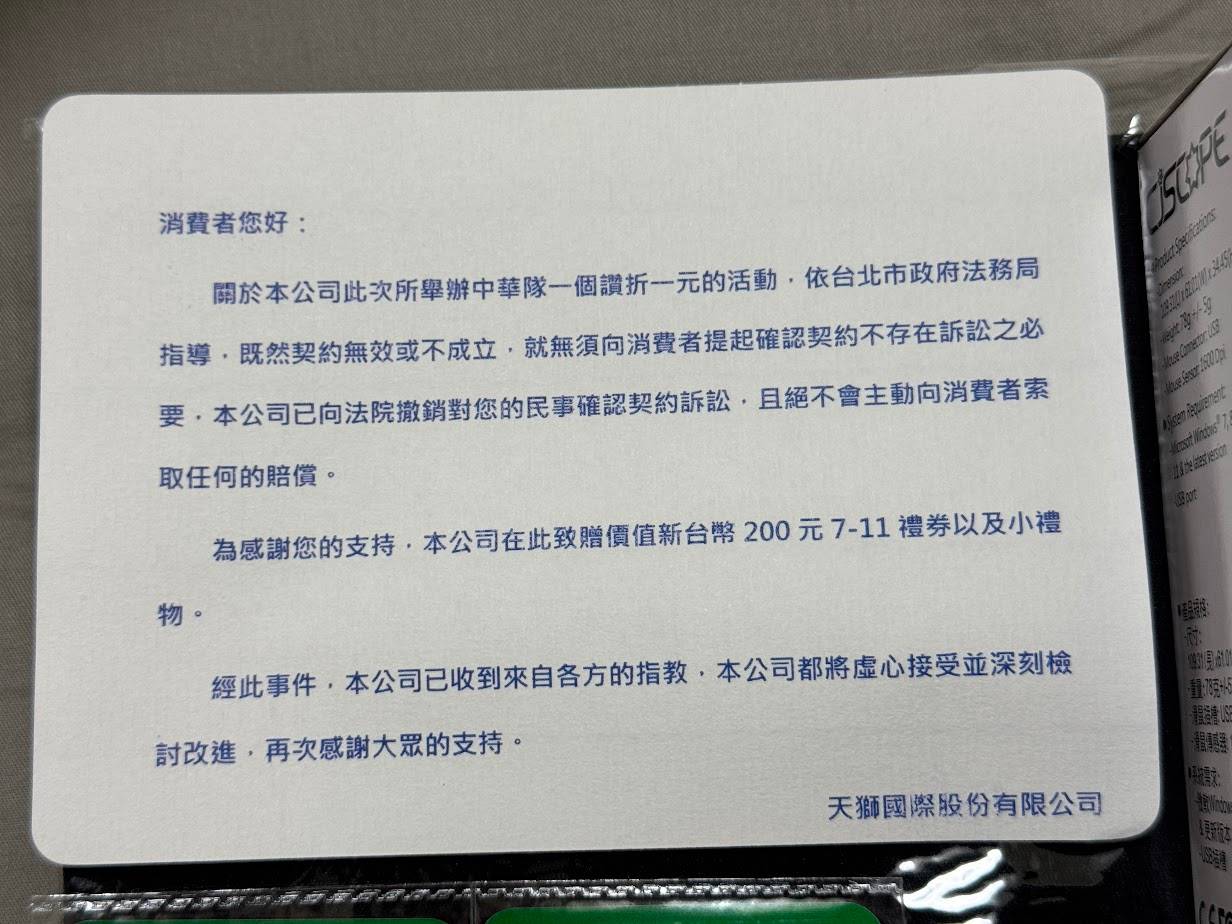 消費者您好：
關於本公司此次所舉辦中華隊一個讚折一元的活動，依台北市政府法務局
指導，既然契約無效或不成立，就無須向消費者提起確認契約不存在訴訟之必
要，本公司已向法院撤銷對您的民事確認契約訴訟，且絕不會主動向消費者索
取任何的賠償。
為感謝您的支持，本公司在此致贈價值新台幣 200 元 7-11 禮券以及小禮
物。
經此事件，本公司已收到來自各方的指教，本公司都將虛心接受並深刻檢
討改進，再次感謝大眾的支持。
天獅國際股份有限公司
CJSCOPE
Product Specifications:
-Dimension:
-Weight: 78g +/- 5g
-Mouse Connector: USB
-Mouse Sensor: 1600 Dpi
System Requirement:
-Microsoft Windows® 7,
& the latest version
-USB port
產品規格:
-尺寸:
-滑鼠插槽: US
-滑鼠傳感器:
系統需求:
& 更新版本
-USB插槽